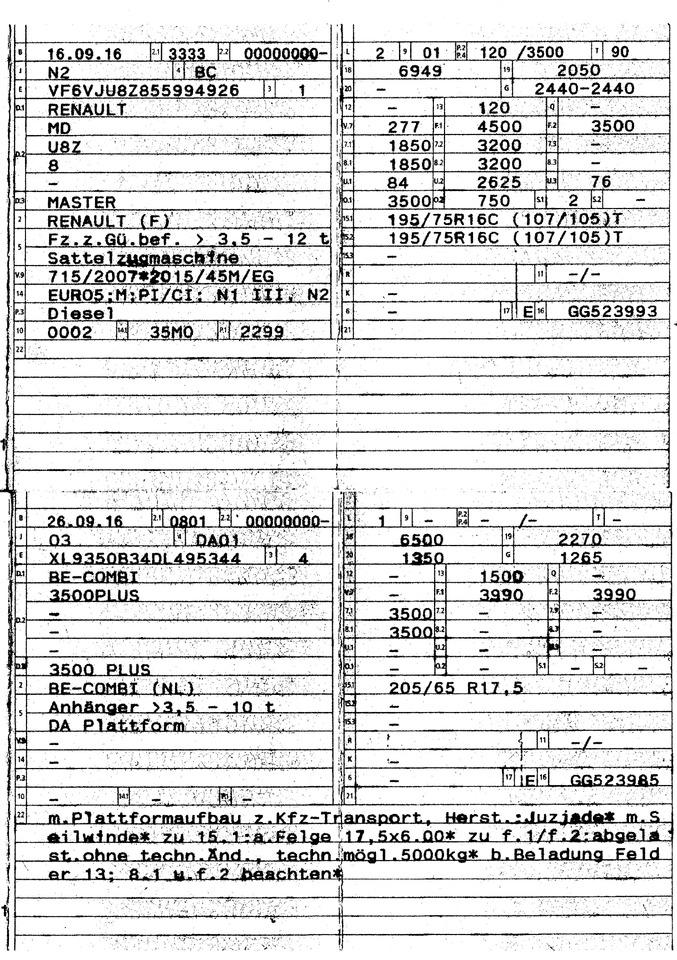 B 16.09.16 2.1 3333 2.2 00000000- L 2 9 01 P.2 P.4 120 /3500 T 90
J N2 4 BC 18 6949 19 2050
E VF6VJU8Z855994926 3 1 20 - G 2440-2440
D.1 RENAULT 12 - 13 120 Q -
MD V.7 277 F.1 4500 F.2 3500
D.2 U8Z 7.1 1850 7.2 3200 7.3 -
8 8.1 1850 8.2 3200 8.3 -
- U.1 84 U.2 2625 U.3 76
D.3 MASTER O.1 3500 O.2 750 S.1 2 S.2 -
2 RENAULT (F) 15.1 195/75R16C (107/105)T
5 Fz.z.Gü.bef. > 3,5 - 12 t 15.2 195/75R16C (107/105)T
Sattelzugmaschine 15.3 -
V.9 715/2007*2015/45M/EG R 11 -/-
14 EURO5;M;PI/CI; N1 III, N2 K -
P.3 Diesel 6 - 17 E 16 GG523993
10 0002 14.1 35M0 P.1 2299 21
22
B 26.09.16 2.1 0801 2.2 00000000- L 1 9 - P.2 P.4 - /- T -
J O3 4 DA01 18 6500 19 2270
E XL9350B34DL495344 3 4 20 1350 G 1265
D.1 BE-COMBI 12 - 13 1500 Q -
3500PLUS V.7 - F.1 3990 F.2 3990
D.2 - 7.1 3500 7.2 - 7.3 -
- 8.1 3500 8.2 - 8.3 -
- U.1 - U.2 - U.3 -
D.3 3500 PLUS O.1 - O.2 - S.1 - S.2 -
2 BE-COMBI (NL) 15.1 205/65 R17,5
5 Anhänger >3,5 - 10 t 15.2 -
DA Plattform 15.3 -
V.9 - R 11 -/-
14 - K -
P.3 - 6 - 17 E 16 GG523985
10 - 14.1 - P.1 - 21
22 m.Plattformaufbau z.Kfz-Transport, Herst.:Juzjade* m.S
eilwinde* zu 15.1:a.Felge 17,5x6.00* zu f.1/f.2:abgela
st.ohne techn.Änd., techn.mögl.5000kg* b.Beladung Feld
er 13; 8.1 u.f.2 beachten*